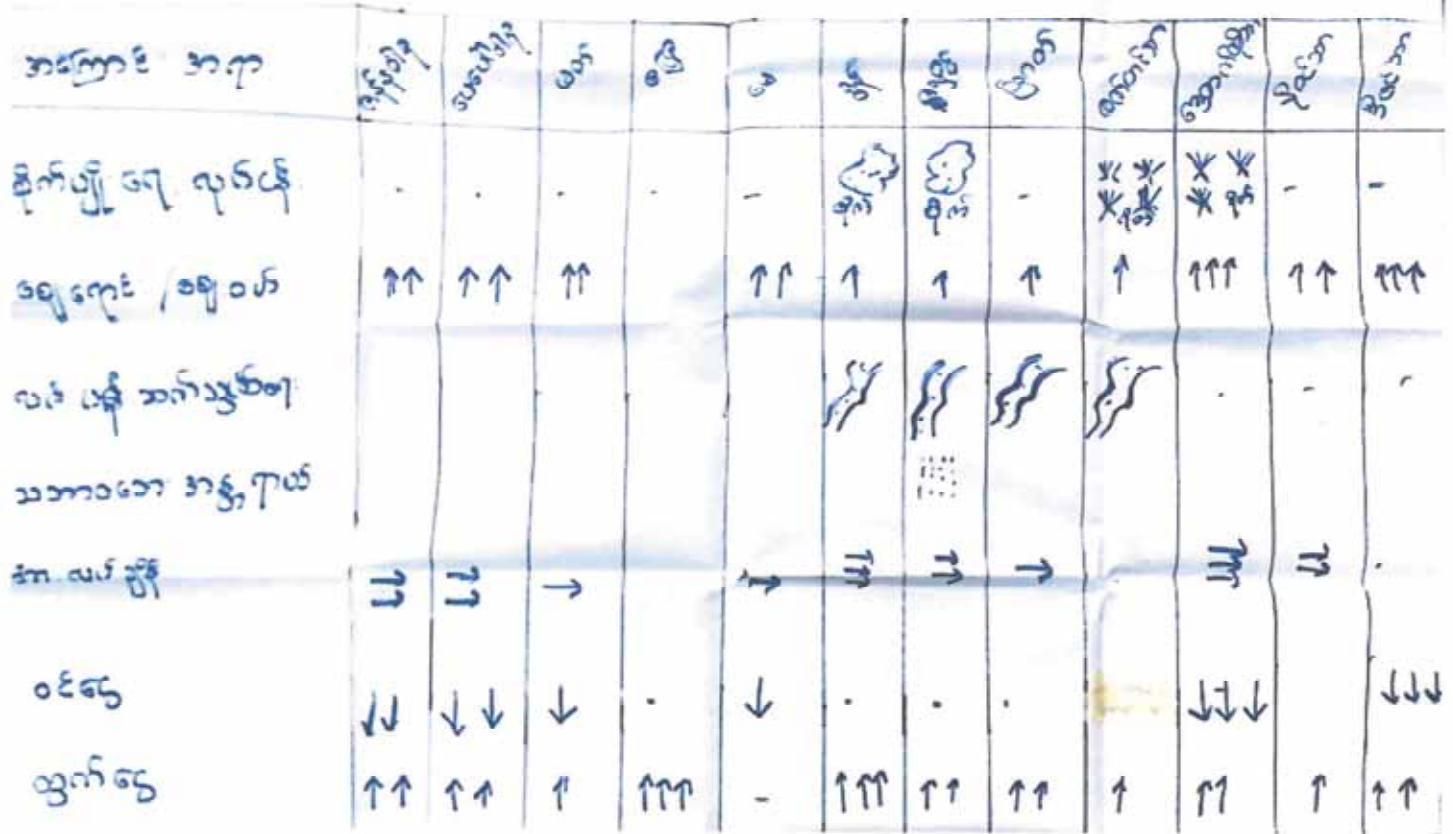 အကြောင်း အရာ ဇန်နဝါရီ ဖေဖေါ်ဝါရီ မတ် ဧပြီ မေ ဇွန် ဩဂုတ် စက်တင်ဘာ အောက်တိုဘာ နိုဝင်ဘာ ဒီဇင်ဘာ
စိုက်ပျိုး ရေး လုပ်ငန်း စိုက် စိုက် ရိတ်
ဈေးရောင်း / ဈေးဝယ်
လမ်း ပန်း ဆက်သွယ်ရေး
သဘာဝဘေး အန္တရာယ်
အားလပ်ချိန်
ဝင်ငွေ
ထွက်ငွေ